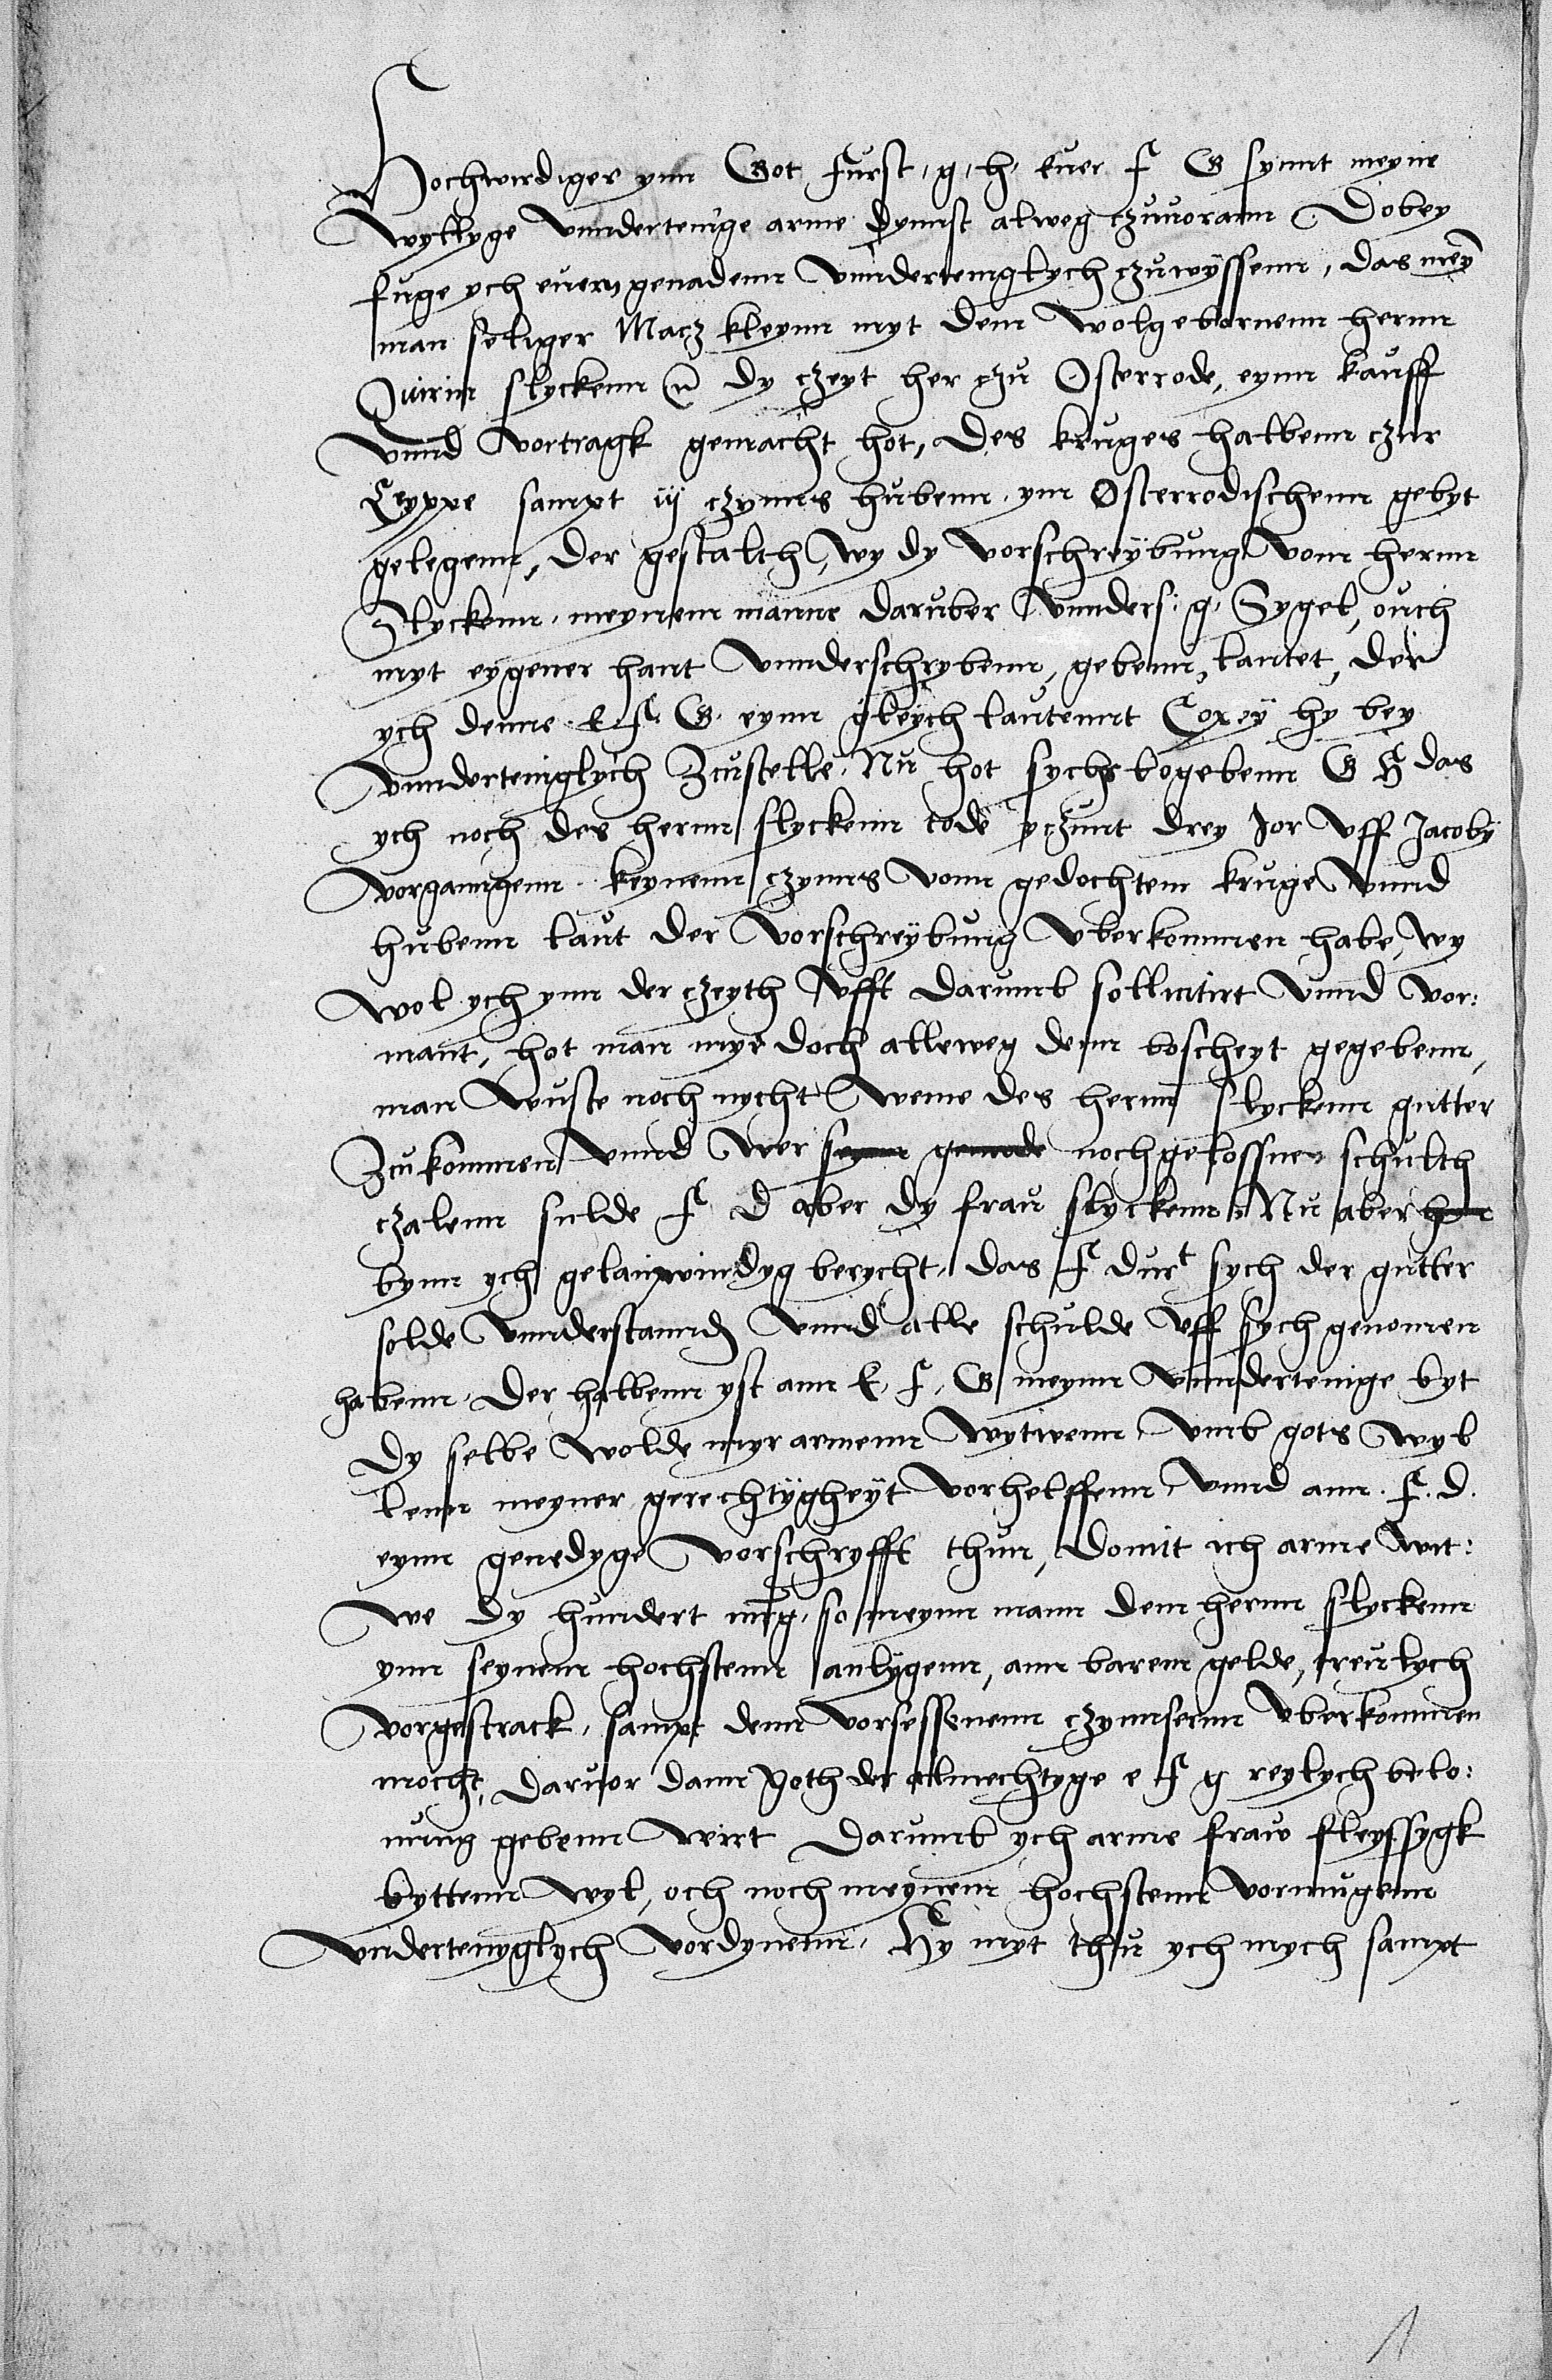 Hochwirdiger ynn Got furst, g, h, euer f G synnt meyne
wyllyge vnndertenige arme dynnst alweg czuuorann Dobey
fuge ych euern genadenn vnnderteniglych czuwyssenn, das meyn
man seliger Macz kleynn myt dem wolgebornenn hernn
Quirin slyckenn dy czeyt her czu Osterrode, eynn kauff
vnnd vortragk gemacht hot, des kruges halbenn czur
Leyppe sampt iij czynns hubenn ynn Osterrodischenn gebyt
gelegenn, der gestalth, wy dy vorschreybung vonn hernn
Slyckenn meynem manne daruber vnnder s: g. Sygel, ouch
myt eygener hant vnnderschrybenn, gebenn, lautet, der
ych denne E f G. eynn gleych lautennt Copey hy bey
vnnderteniglych Zcustelle. Nu hot sychs bogebenn G H das
ych noch des hernn slyckenn tode yczunt drey Jor vff Jacoby
vorganngenn keynenn czynns vonn gedochtem kruge vnnd
hubenn laut der vorschreybung vberkommen habe, wy
wol ych ynn der czeyth offt darumb sollicitirt vnnd vor:
mant, hot man myr doch alleweg denn boscheyt gegebenn,
man wuste noch nycht weme des hernn slyckenn gutter
Zcukommen vnnd wer seynn genode nochgelossne schulth
czalenn sulde f D aber dy frau slyckenn Nu aber
bynn ych gelaupwindyg berycht, das f durt sych der gutter
solde vnnderstannden vnnd alle schulde vff sych genomen
habenn. Der halbenn yst ann E, f, G meynn vnndertenige byt
dy selbe wolde myr armenn wytwenn vmb gots wyl
lenn meyner gerechtygheyt vorhelffenn vnnd ann. f. d.
eynn genedyge vorschryfft thun, domit ich arme wit:
we dy hundert mrg, so meynn mann dem hernn slyckenn
ynn seynem hochstenn anlygenn, ann barem gelde, treulych
vorgestrack, sampt denn vorsessenenn czynnsenn vberkommen
mocht, daruor dann Goth der almechtyge e f g reylych belo:
nung gebenn wirt Darumb ych arme fraw fleyssygk
byttenn wyl, och noch meynem hochstenn vormugenn
vndertenyglych vordynenn. Hy myt thu ych mych sampt
1